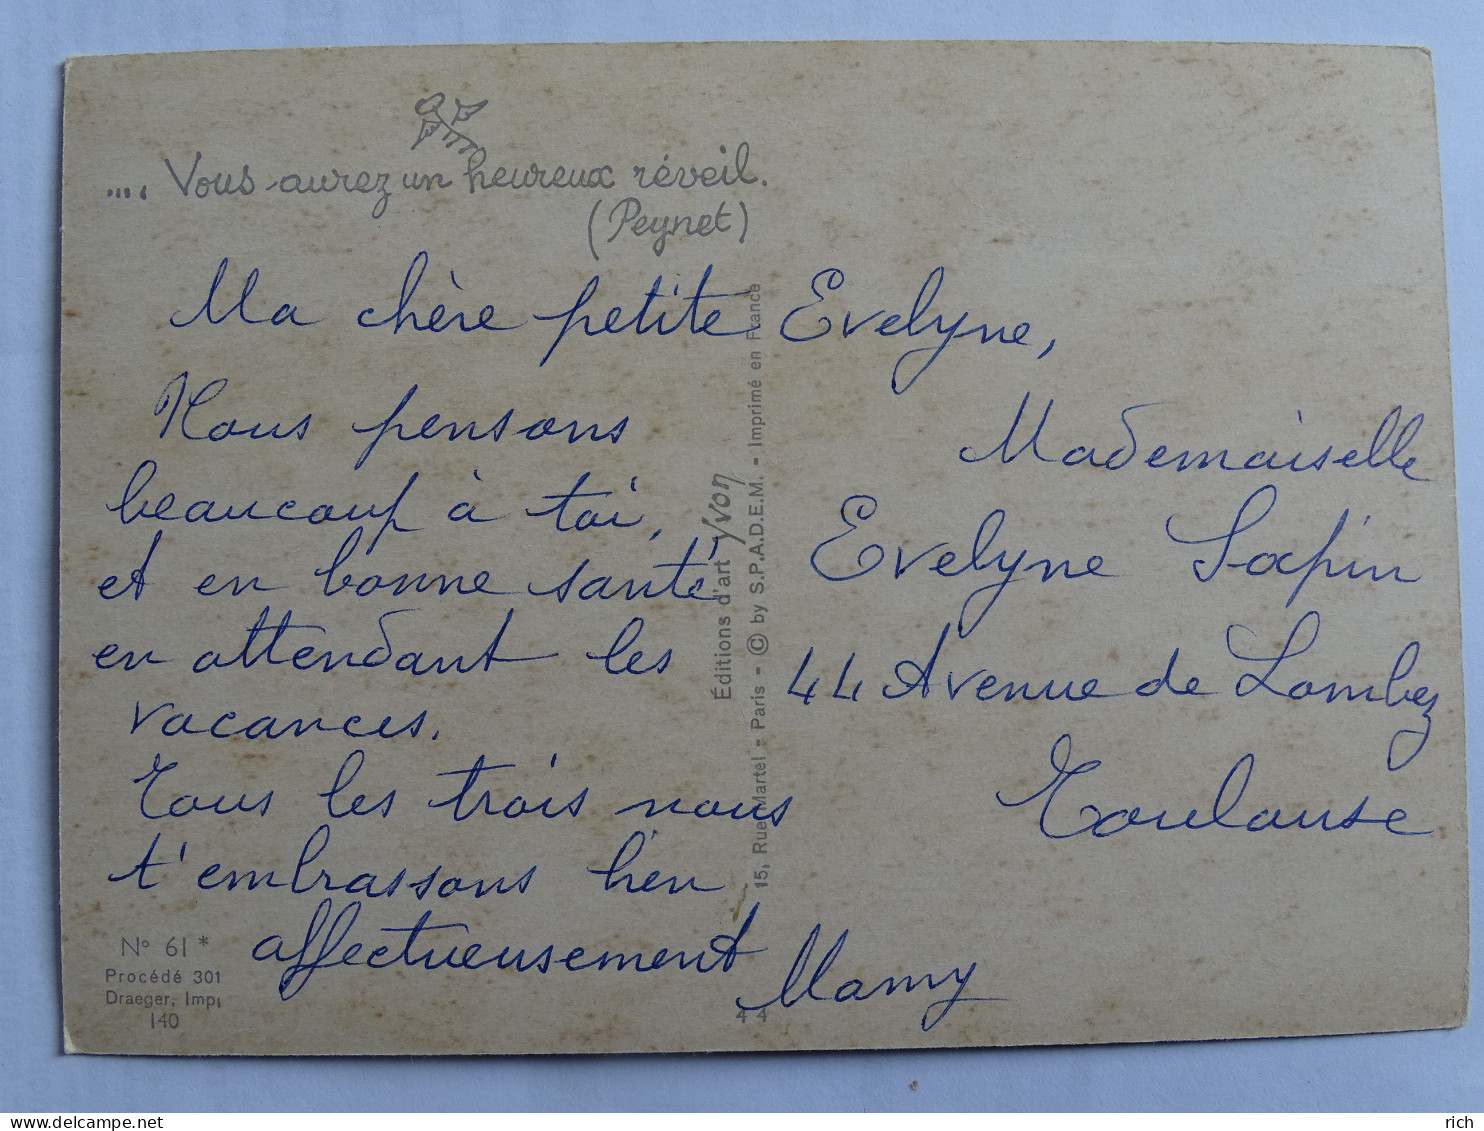 .... Vous aurez un heureux réveil.
(Peynet)
Ma chère petite Evelyne,
Nous pensons
beaucoup à toi,
et en bonne santé
en attendant les
vacances.
Tous les trois nous
t'embrassons bien
affectueusement
Mamy
Mademaiselle
Evelyne Sapin
44 Avenue de Lombez
Toulouse
Éditions d'art Yvon
15, Rue Martel - Paris - © by S.P.A.D.E.M. - Imprimé en France
N° 61 *
Procédé 301
Draeger, Imp.
140
44
rich